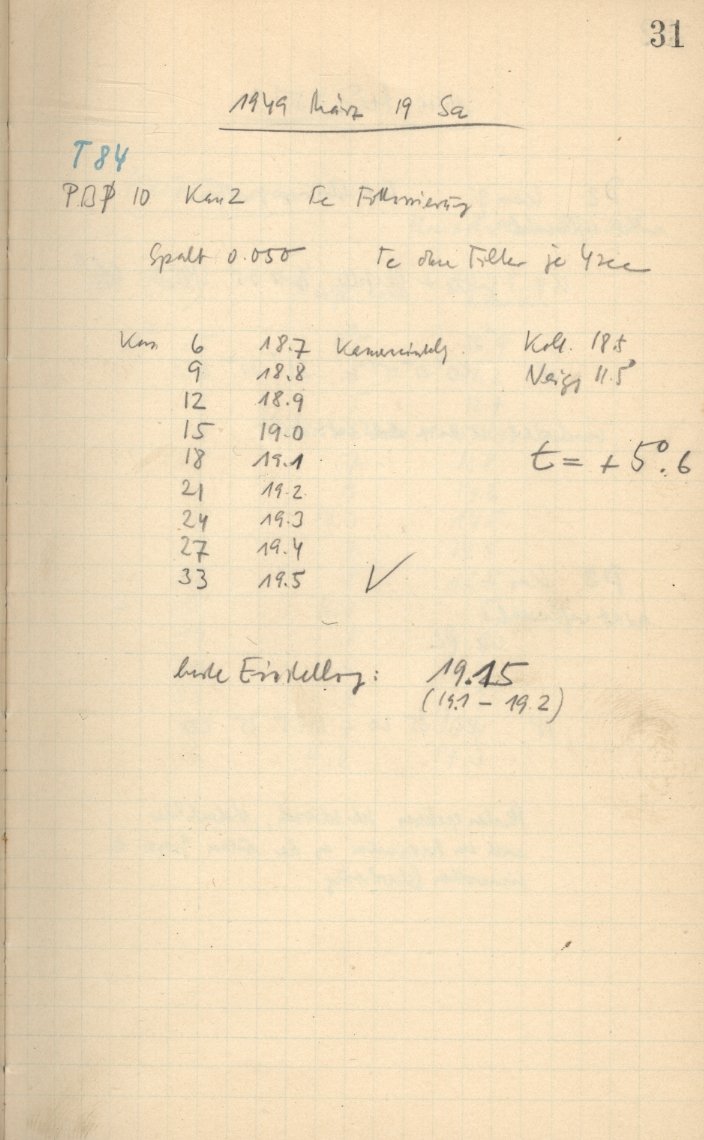 31
1949 März 19 Sa
T84
PBP 10 Kan2 Fe Fokussierung
Spalt 0.050 Fe ohne Filter je 4sec
Kass 6 18.7 Kameraeinstellg. Koll. 18.5
9 18.8 Neigg 11.5°
12 18.9
15 19.0
18 19.1 t = + 5°.6
21 19.2
24 19.3
27 19.4
33 19.5 ✓
beste Einstellung: 19.15
(19.1 – 19.2)